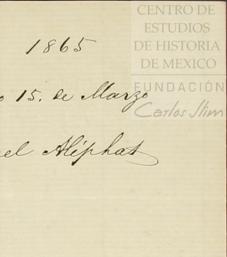 CENTRO DE
ESTUDIOS
DE HISTORIA
DE MEXICO
FUNDACIÓN
Carlos Slim
1865
o 15. de Marzo
el Aliphat